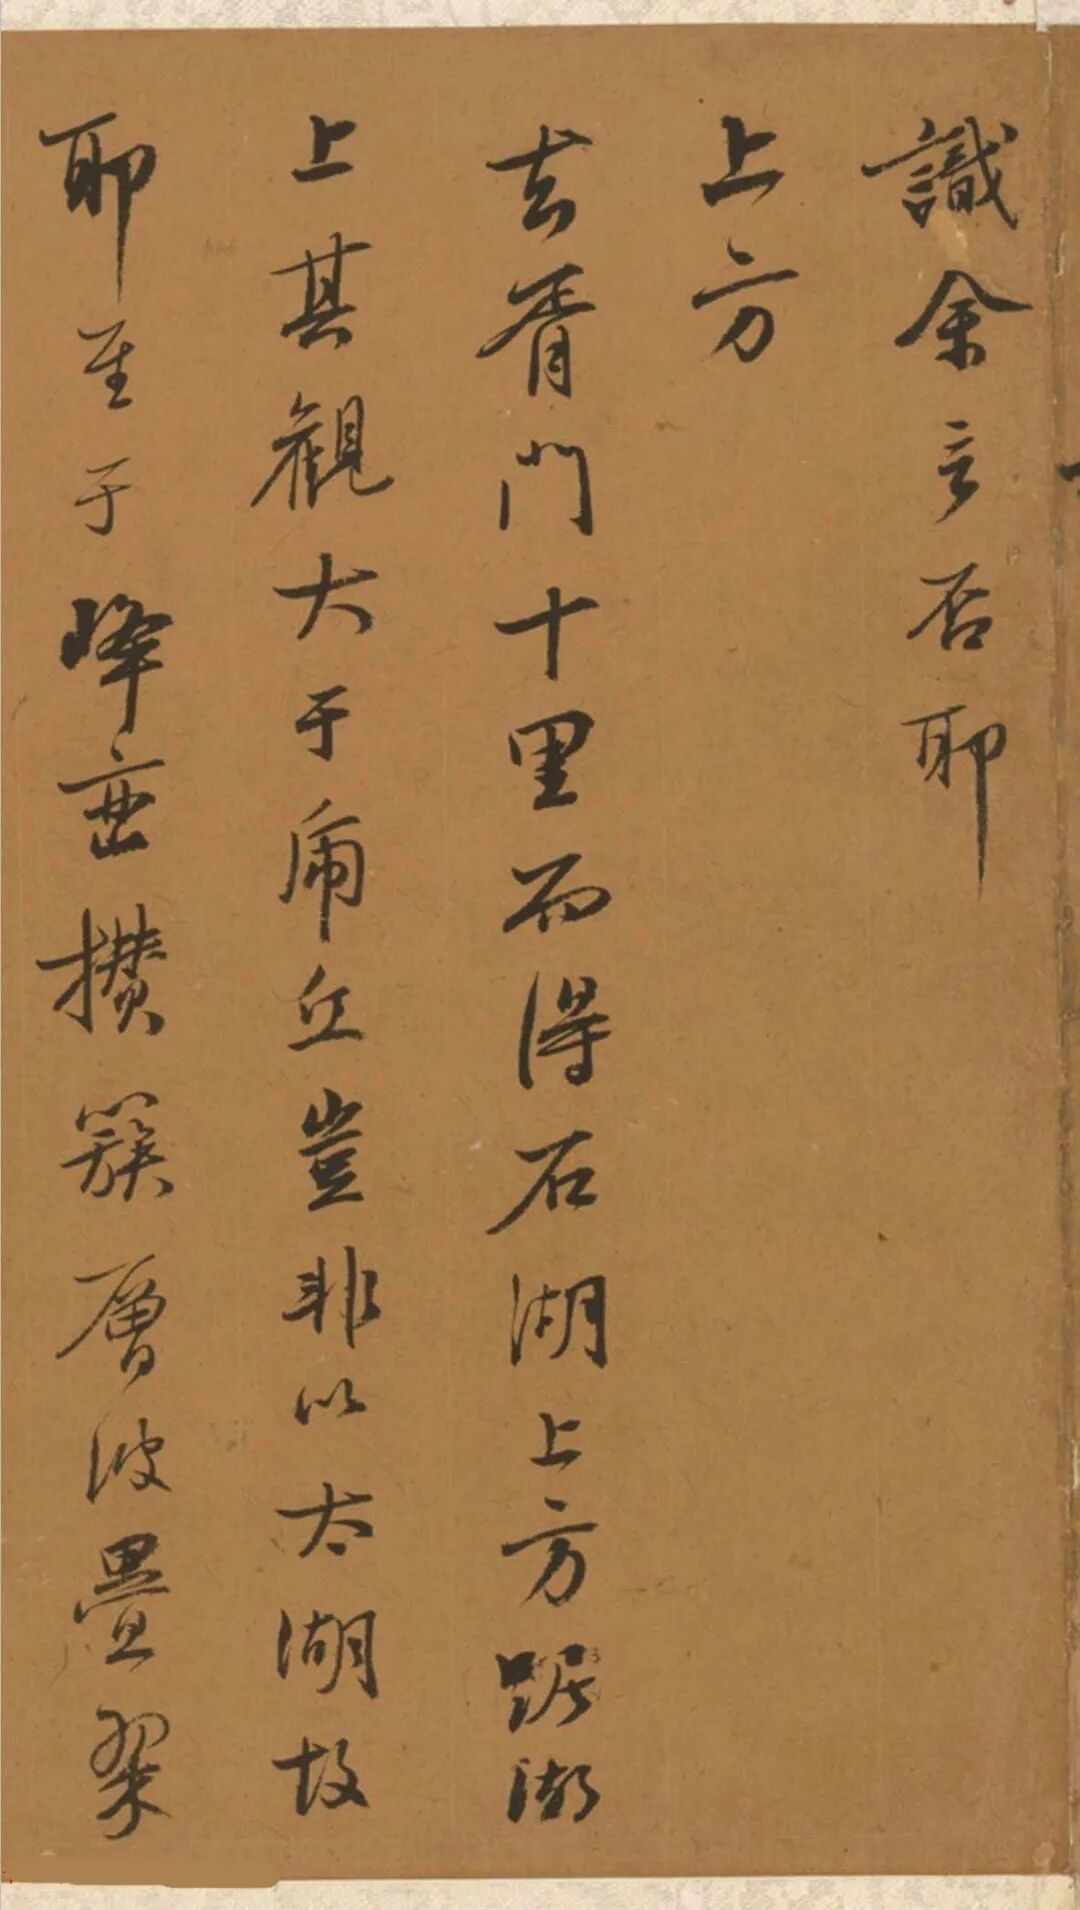 識余言否耶
上方
去胥門十里而得石湖上方踞湖
上其觀大于虎丘豈非以太湖故
耶至于峰巒攢簇層波疊翠